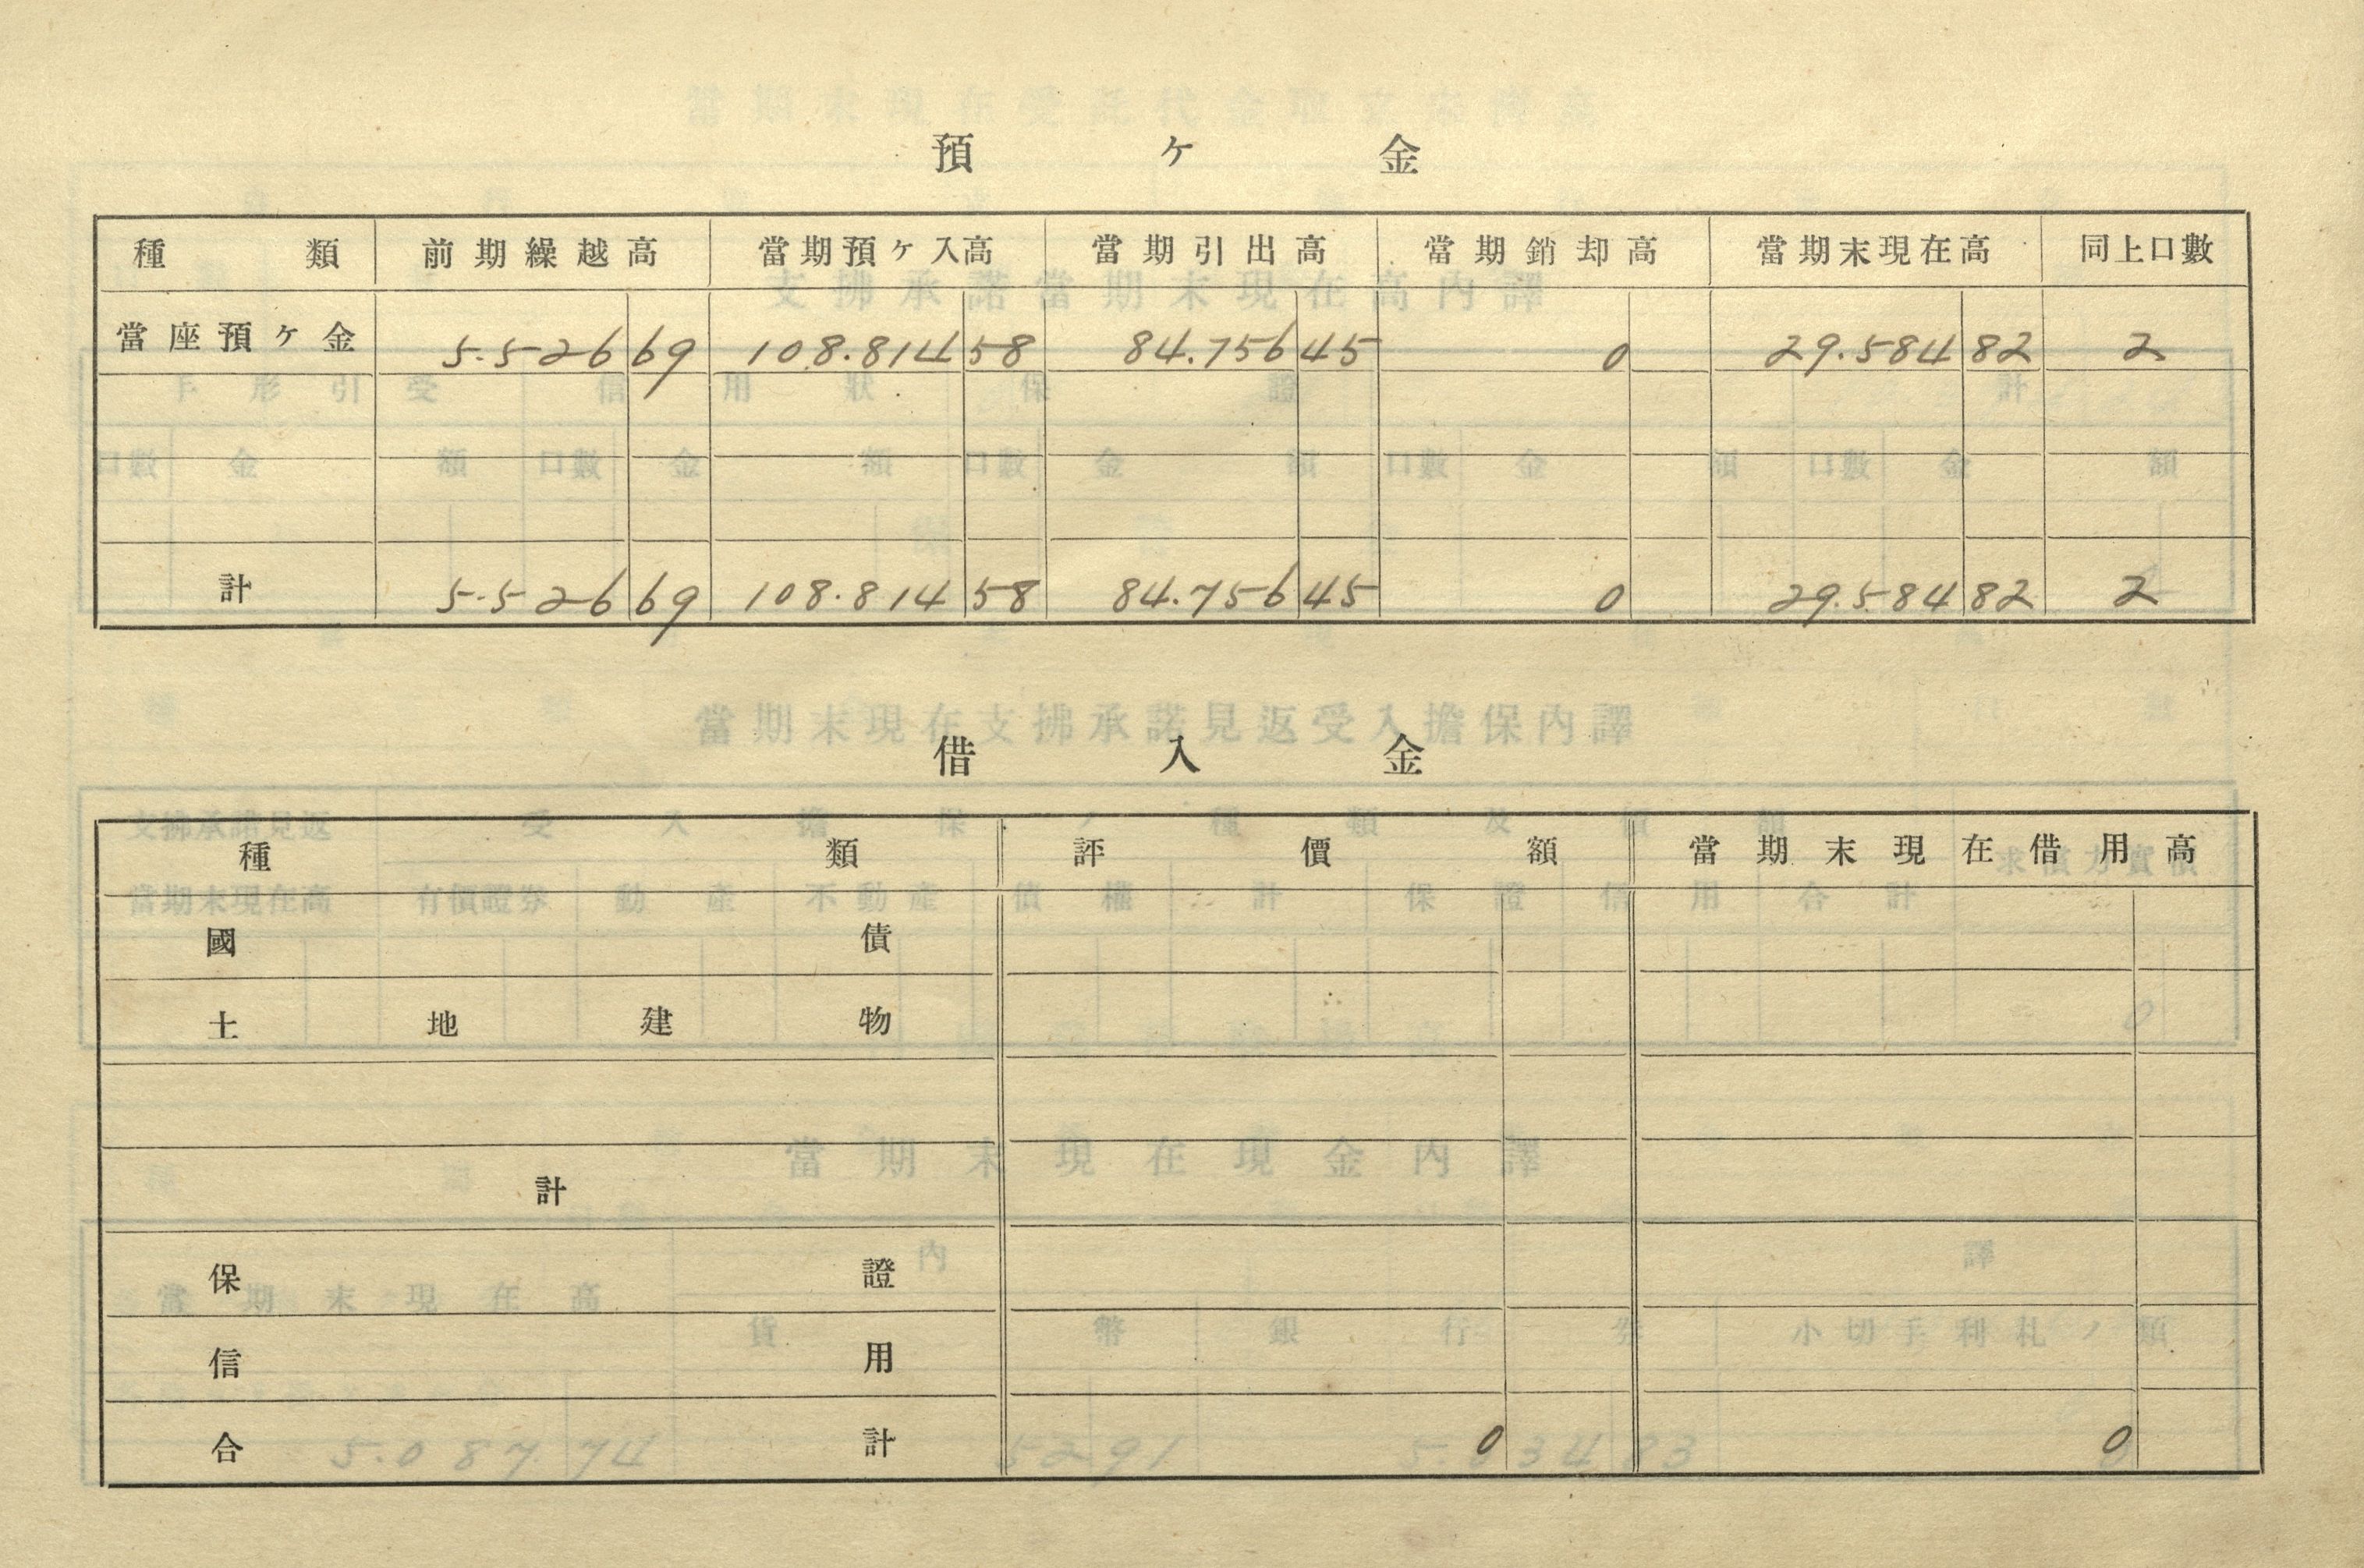 預ヶ金
種類 前期繰越高 當期預ヶ入高 當期引出高 當期銷却高 當期末現在高 同上口數
當座預ヶ金 5.526 69 108.814 58 84.756 45 0 29.584 82 2
計 5.526 69 108.814 58 84.756 45 0 29.584 82 2
借入金
種類 評價額 當期末現在借用高
國債
土地建物
計
保證
信用
合計 0 0